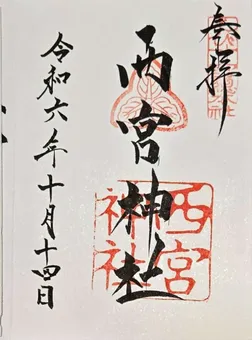 奉拝
西宮神社
西宮神社
令和六年十月十四日